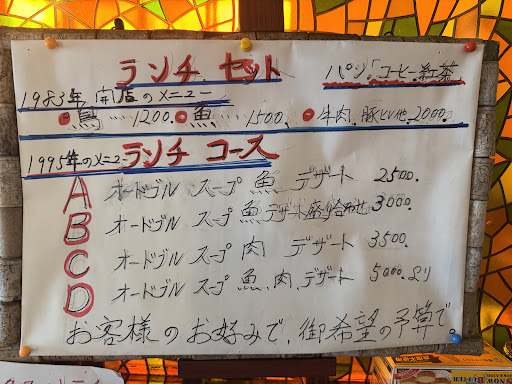 ランチ セット
パン「コーヒー紅茶
1983年 開店のメニュー
鳥 ‥‥ 1200. 魚 ‥‥ 1500. 牛肉、豚ヒレ他. 2000.
1995年のメニュー ランチ コース
A オードブル スープ 魚 デザート 2500.
B オードブル スープ 魚 デザート盛り合わせ 3000.
C オードブル スープ 肉 デザート 3500.
D オードブル スープ 魚.肉.デザート 5000.より
お客様のお好みで.御希望の予算で